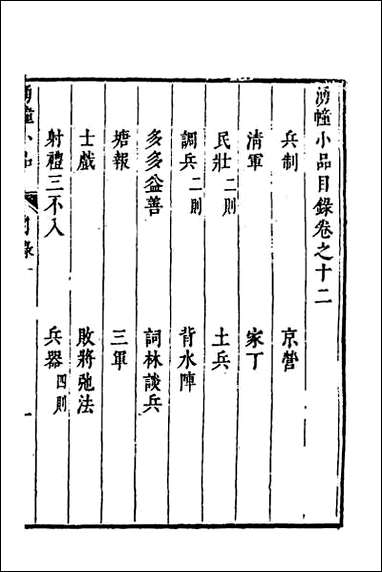 湧幢小品目錄卷之十二
兵制 京營
清軍 家丁
民壯二則 土兵
調兵二則 背水陣
多多益善 詞林談兵
塘報 三軍
士戲 敗將弛法
射禮三不入 兵器四則
湧幢小品 目錄 一